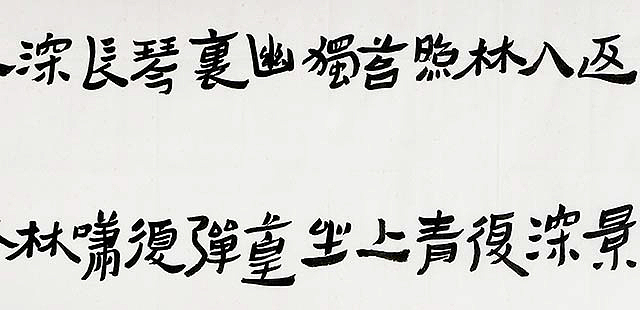 返景
入深
林復
照青
苔上
獨坐
幽篁
裏彈
琴復
長嘯
深林